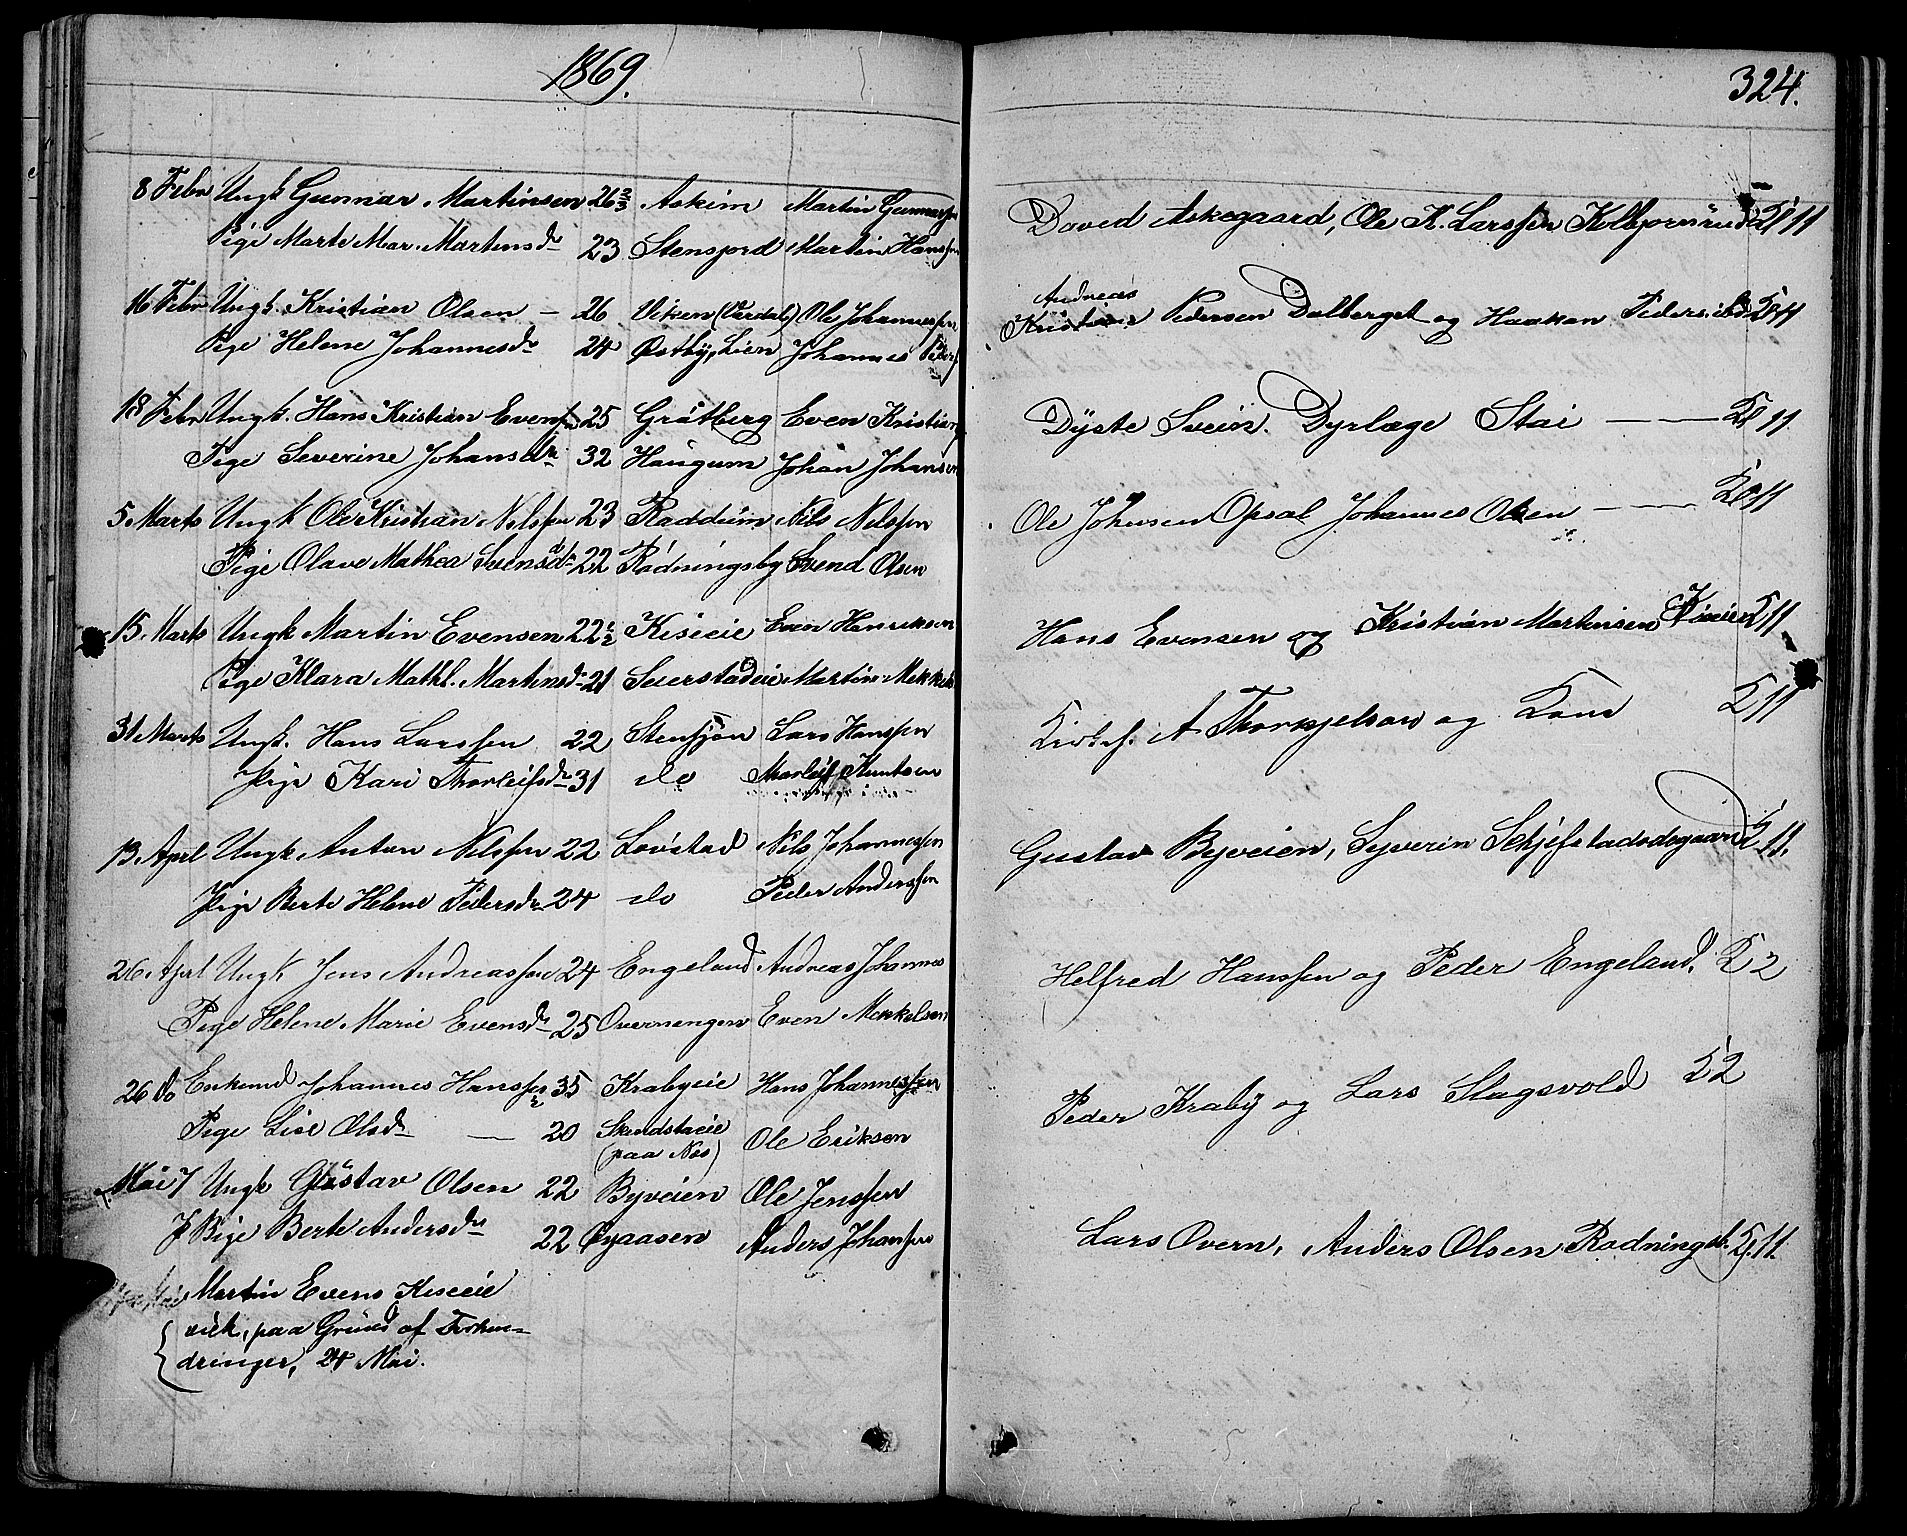 1869.
8 Febr Ungk Gunnar Martinsen 26 2/3 Askim Martin Gunnarsen
Pige Marte Mar. Martinsdr 23 Stensjord Martin Hansen
16 Febr Ungk. Kristian Olsen — 26 Viken (Vardal) Ole Johannessen
Pige Helene Johannesdr 24 Østby, Lien Johannes
18 Febr Ungk. Hans Kristian Evensen 25 Gråtberg Even Kristian
Pige Severine Johansdr 32 Haugum Johan Johansen
5 Marts Ungk Ole Kristian Nilssen 23 Raddum Nils Nilssen
Pige Olave Mathea Svensdr 22 Rådningsby Svend Olsen
15 Marts Ungk Martin Evensen 22 1/2 Kiseeie Even Henriksen
Pige Klara Mathl. Martinsdr 21 Seierstadeie Martin Mekkels
31 Marts Ungk. Hans Larssen 22 Stensjon Lars Hanssen
Pige Kari Thorleifsdr 31 do Thorleif Knutsen
13 Aprl Ungk Anton Nilssen 22 Lovstad Nils Johannessen
Pige Berte Helene Pedersdr 24 do Peder Anderssen
26 Aprl Ungk Jens Andreassen 24 Engeland Andreas Johannes
Pige Helene Marie Evensdr 25 Overnengen Even Mekkelsen
26 do Enkemd Johannes Hanssen 35 Krabyeie Hans Johannessen
Pige Lise Olsdr — 20 Skundstaeie (paa Nes) Ole Eriksen
Mai 7 Ungk Gustav Olsen 22 Byveien Ole Jenssen
Pige Berte Andersdr 22 Øyaasen Anders Johanssen
Martin Evens Kiseeie
paa Grund af
dringer, 24 Mai.
324.
David Askegaard, Ole K. Larssen Kolbjornsrud 511
Andreas
Kristian Pedersen Dalberget og Haakon 511
Dyste Svein. Dyrlæge Stai — — 511
Ole Johnsen Opsal Johannes Olsen — — 511
Hans Evensen og Kristian Martinsen 511
A Thorkjelson og Kone 511
Gustav Byveien, Syverin Skjefstadødegaard 511.
Helfred Hanssen og Peder Engeland. 52
Peder Kraby og Lars Slagsvold 52
Lars Overn, Anders Olsen Radningsb. 5.11.